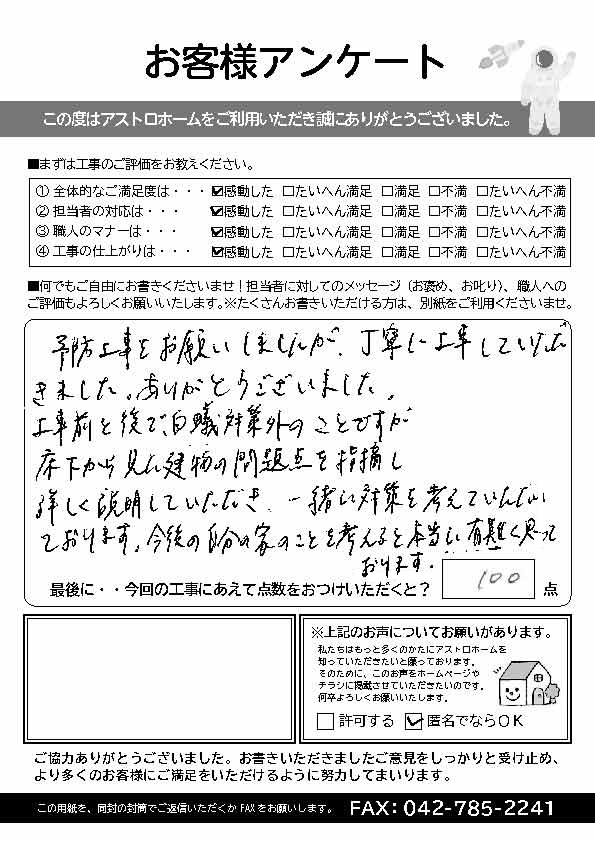 お客様アンケート
この度はアストロホームをご利用いただき誠にありがとうございました。
■まずは工事のご評価をお教えください。
① 全体的なご満足度は・・・ ☑感動した □たいへん満足 □満足 □不満 □たいへん不満
② 担当者の対応は・・・ ☑感動した □たいへん満足 □満足 □不満 □たいへん不満
③ 職人のマナーは・・・ ☑感動した □たいへん満足 □満足 □不満 □たいへん不満
④ 工事の仕上がりは・・・ ☑感動した □たいへん満足 □満足 □不満 □たいへん不満
■何でもご自由にお書きくださいませ！担当者に対してのメッセージ（お褒め、お叱り）、職人への
ご評価もよろしくお願いいたします。※たくさんお書きいただける方は、別紙をご利用くださいませ。
予防工事をお願いしましたが、丁寧に工事していただ
きました。ありがとうございました。
工事前と後で、白蟻対策外のことですが
床下から見た建物の問題点を指摘し
詳しく説明していただき、一緒に対策を考えていただい
ております。今後の自分の家のことを考えると本当に有難く思って
おります。
最後に・・今回の工事にあえて点数をおつけいただくと？ 100 点
※上記のお声についてお願いがあります。
私たちはもっと多くのかたにアストロホームを
知っていただきたいと願っております。
そのために、このお声をホームページや
チラシに掲載させていただきたいのです。
何卒よろしくお願いいたします。
□許可する ☑匿名でならＯＫ
ご協力ありがとうございました。お書きいただきましたご意見をしっかりと受け止め、
より多くのお客様にご満足をいただけるように努力してまいります。
この用紙を、同封の封筒でご返信いただくか FAX をお願いします。 FAX：042-785-2241